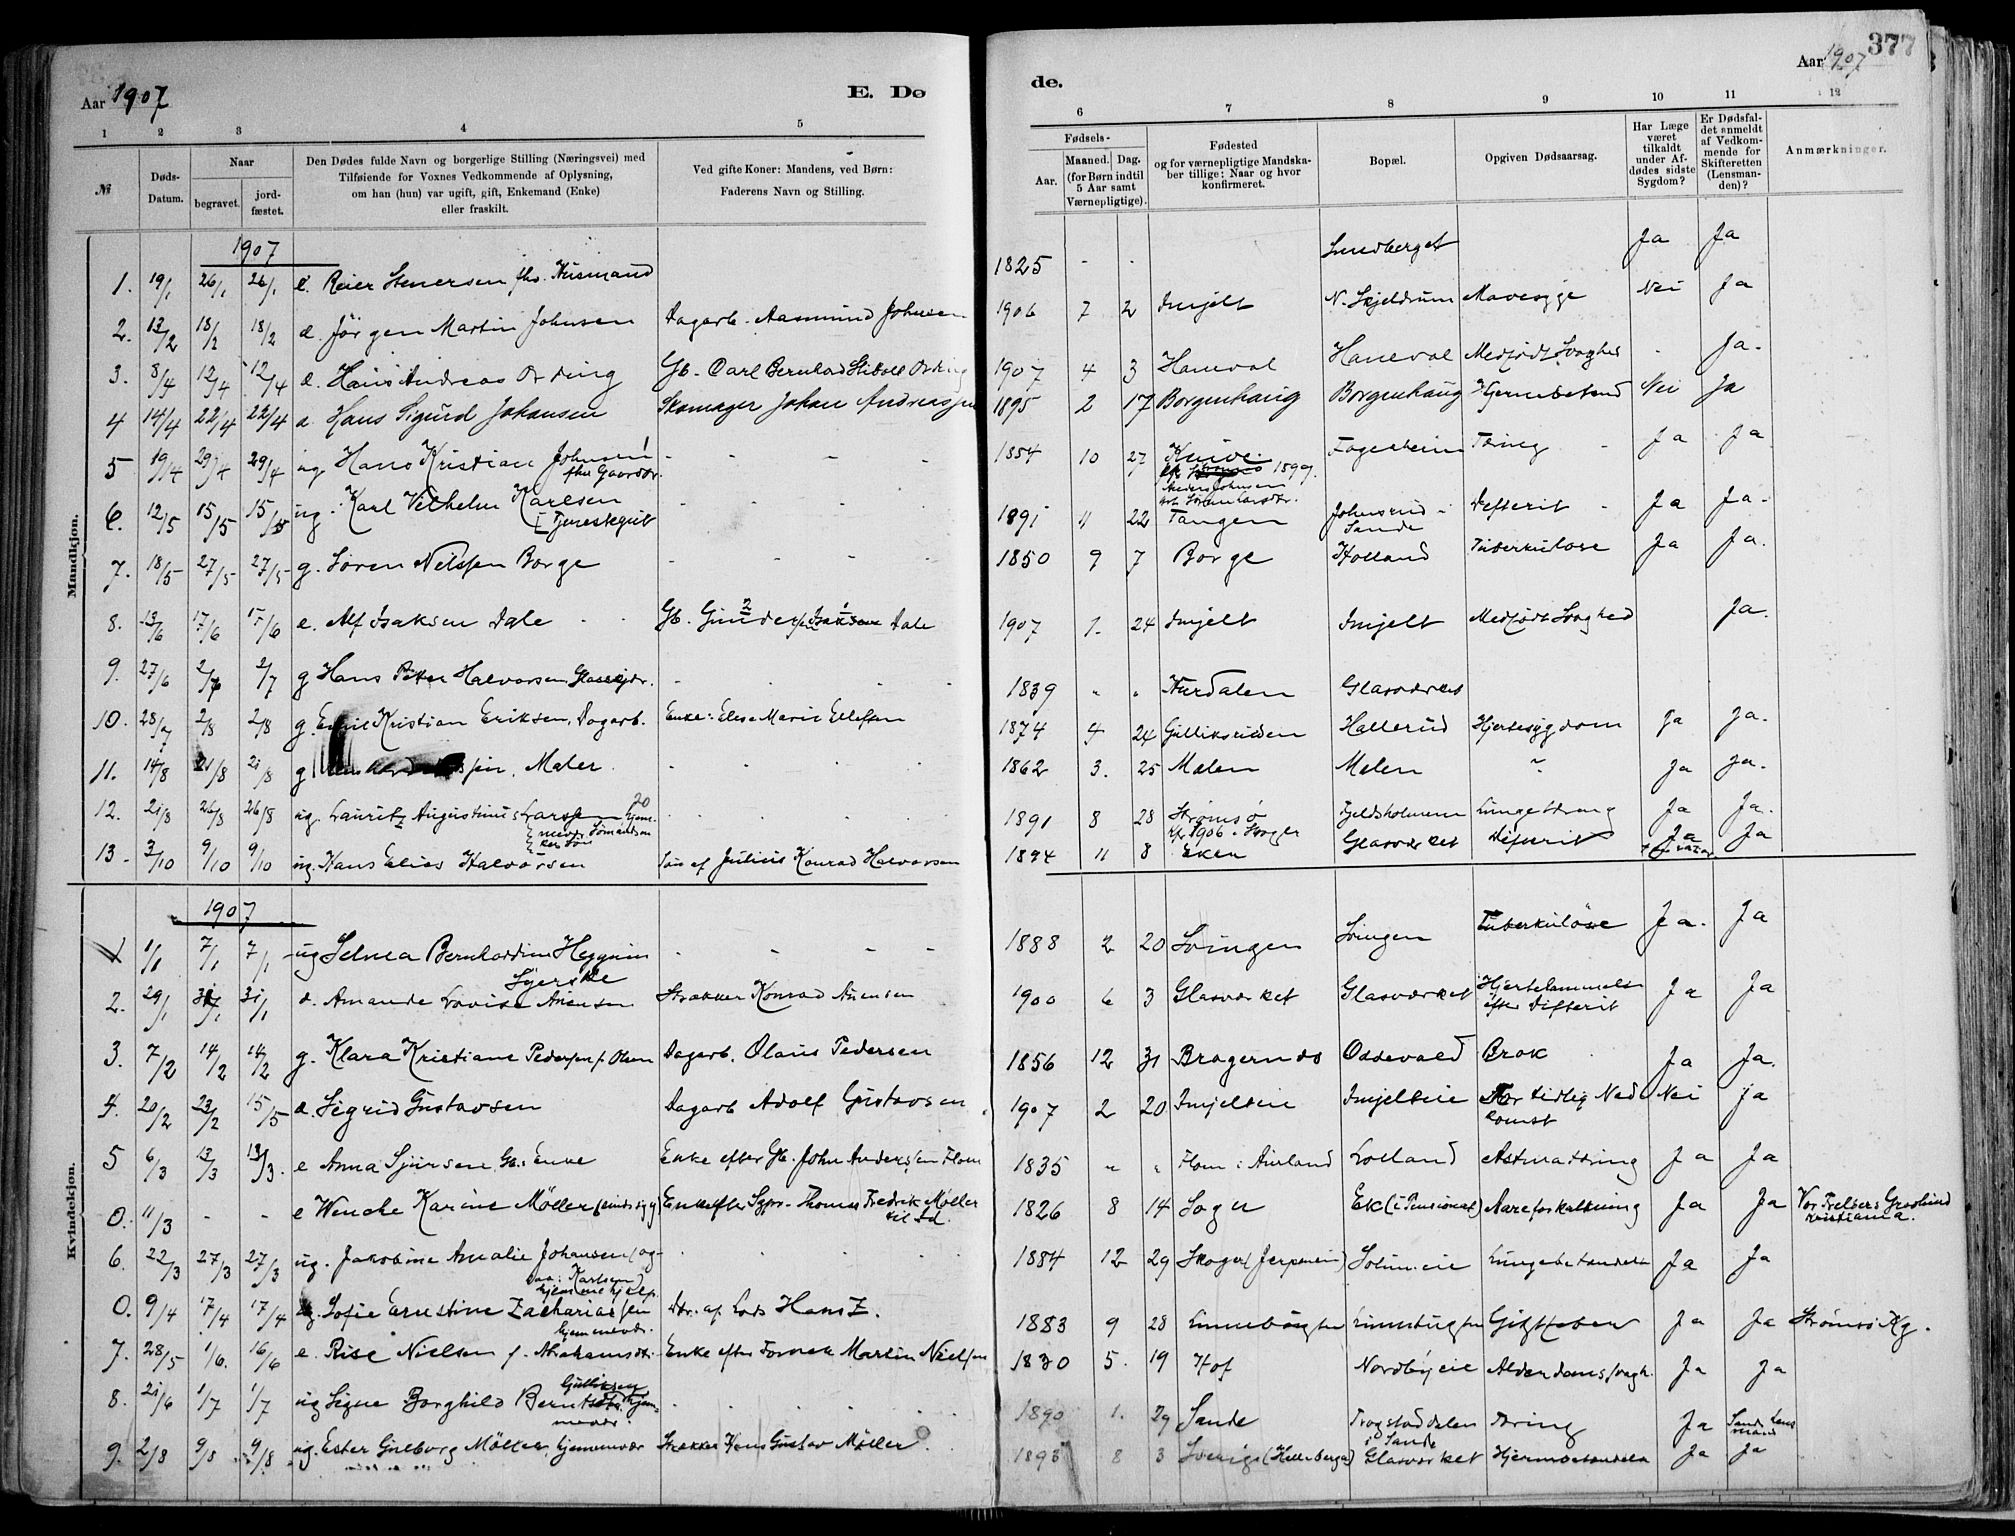 Aar 1907
E. Dø
de.
Aar 1907
377
1 2 3 4 5 6 7 8 9 10 11 12
№
Døds-Datum.
Naar
begravet.
jord-fæstet.
Den Dødes fulde Navn og borgerlige Stilling (Næringsvei) med
Tilføiende for Voxnes Vedkommende af Oplysning,
om han (hun) var ugift, gift, Enkemand (Enke)
eller fraskilt.
Ved gifte Koner: Mandens, ved Børn:
Faderens Navn og Stilling.
Fødsels-
Aar.
Maaned. Dag.
(for Børn indtil
5 Aar samt
Værnepligtige).
Fødested
og for værnepligtige Mandska-
ber tillige: Naar og hvor
konfirmeret.
Bopæl.
Opgiven Dødsaarsag.
Har Læge
været
tilkaldt
under Af-
dødes sidste
Sygdom?
Er Dødsfal-
det anmeldt
af Vedkom-
mende for
Skifteretten
(Lensman-
den)?
Anmærkninger.
Mandkjøn.
1907
1. 19/1 26/1 26/1 e. Reier Stenersen fhv. Husmand 1825 - - Lundberget Ja Ja
2. 13/2 18/2 18/2 d. Jørgen Martin Johnsen Dagarb. Aasmund Johnsen 1906 7 2 Imjelt N. Skjeldrum Mavesyge Nei Ja
3. 8/4 12/4 12/4 d. Hans Andreas Ording Gb. Carl Bernhard Stibolt Ording 1907 4 3 Haneval Haneval Medfødt Svaghed - Ja.
4 14/4 22/4 22/4 d. Hans Sigurd Johansen Skomager Johan Andreassen 1895 2 17 Borgenhaug Borgenhaug Hjernebetend Nei Ja
5 19/4 29/4 29/4 ug. Hans Kristian Johnsen
fhv. Gaardbr. 1854 10 27 Knive Fagerheim Tæring - Ja Ja
6. 12/5 15/5 15/5 ug. Karl Vilhelm Karlsen
Tjenestegut 1891 11 22 Tangen Johnsrud i
Sande Defterit - Ja Ja.
7. 18/5 27/5 27/5 g. Søren Nelssen Borge 1850 9 7 Borge Holland Tuberkulose Ja Ja.
8. 13/6 17/6 17/6 e. Alf Isaksen Dale Gb. Gunder Isaksen Dale 1907 1. 24 Imjelt Imjelt Medfødt Svaghed Ja.
9. 27/6 2/7 2/7 g Hans Peter Halvorsen, 1839 " " Hurdalen Glasværket
10. 28/7 2/8 2/8 g. Kristian Eriksen, Dagarb. Enke: Elise Marie Ellefsen 1874 4 24 Hallerud Hjertesygdom Ja Ja.
11. 14/8 21/8 21/8 g Maler. 1862 3. 25 Melen Melen " Ja Ja.
12. 21/8 26/8 26/8 ug. Lauritz Augustinus Larssen 1891 8 28 Strømsø
kfr. 1906 i Skoger Fjeldsholmen Ja Ja.
13. 3/10 9/10 9/10 ug. Hans Elias Halvorsen Søn af Julius Konrad Halvorsen 1894 11 8 Eken Glasværket Difterit Ja Ja
Kvindekjøn.
1907
1 1/1 7/1 7/1 ug Selma Bernhardine Heggum
Syerske 1888 2 20 Svingen Svingen Tuberkuløse Ja. Ja
2. 29/1 31/1 31/1 d. Amanda Lovise Arensen Strækker Konrad Arensen 1900 6 3 Glasværket Glasværket Hjertelammelse
efter Difterit Ja Ja
3. 7/2 14/2 14/2 g. Klara Kristiane Pedersen f. Olsen Dagarb. Olaus Pedersen 1856 12 31 Bragernes Ossevald Brok Ja Ja.
4. 20/2 23/2 15/5 d. Sigrid Gustavsen Dagarb Adolf Gustavsen 1907 2 20 Imjelteie Imjelteie For tidlig Ned-
komst Nei ja
5 6/3 13/3 13/3. e Anna Sjursen Gb. Enke Enke efter Gb. John Anderssen Flom 1835 " " Flom i Aurland Lolland Astma Tæring Ja Ja
0. 11/3 - - e Wenche Karine Møller (sindssyg) Enke efter Sgpr. Thomas Fredrik Møller
til Sd. 1826 8 14 Sogn Ek (i Pensionat) Aareforkalkning Ja Ja Vor Frelsers Gravlund
Kristiania.
6. 22/3 27/3 27/3 ug. Jakobine Amalie Johansen (og-
saa: Karlsen)
hjemmehjelp. 1884 12 29 Skoger (Jerpenein) Solum eie Lungebetændelse Ja Ja
0. 9/4 17/4 17/4 ug. Sofie Ernestine Zachariassen
hjemmevær. Dtr. af Lods Hans Z. 1883 9 28 Ja Ja Strømsø Kg.
7. 28/5 1/6. 16/6 e. Rise Nielsen f. Abrahamsdtr. Enke efter Martin Nielsen 1830 5. 19 Hof Nordbyeie Alderdomssvagh. Ja Ja
8. 21/6 1/7 1/7 ug Signe Borghild Gulliksen
hjemmevær. 1890 1. 29 Sande Trogstaddalen
i Sande Tæring Ja Sande Lens
mand
9. 2/8 9/8 9/8 ug. Ester Gøteborg Møller hjemmevær Strækker Hans Gustav Møller. 1893 8 3 Sverige (Hellebergs) Glasværket Hjernebetændelse Ja Ja